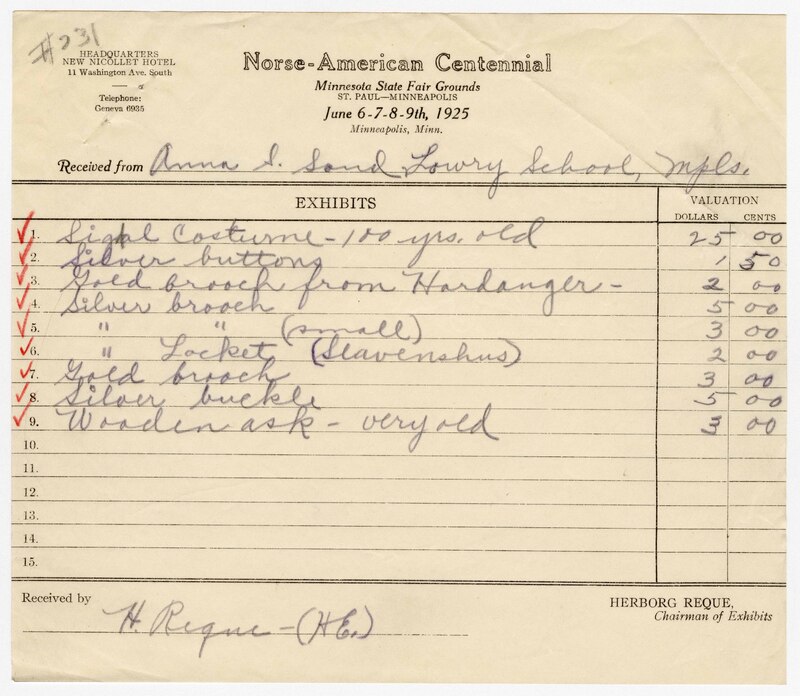 #231
HEADQUARTERS
NEW NICOLLET HOTEL
11 Washington Ave. South
Telephone:
Geneva 6935
Norse-American Centennial
Minnesota State Fair Grounds
ST. PAUL—MINNEAPOLIS
June 6-7-8-9th, 1925
Minneapolis, Minn.
Received from Anna S. Sand Lowry School, Mpls.
EXHIBITS VALUATION
DOLLARS CENTS
1. Sigdal Costume - 100 yrs. old 25 00
2. Silver buttons 1 50
3. Gold brooch from Hardanger - 2 00
4. Silver brooch 5 00
5. " " (small) 3 00
6. " Locket (Slavenshus) 2 00
7. Gold brooch 3 00
8. Silver buckle 5 00
9. Wooden ask - very old 3 00
10.
11.
12.
13.
14.
15.
Received by H. Reque - (HE.)
HERBORG REQUE,
Chairman of Exhibits